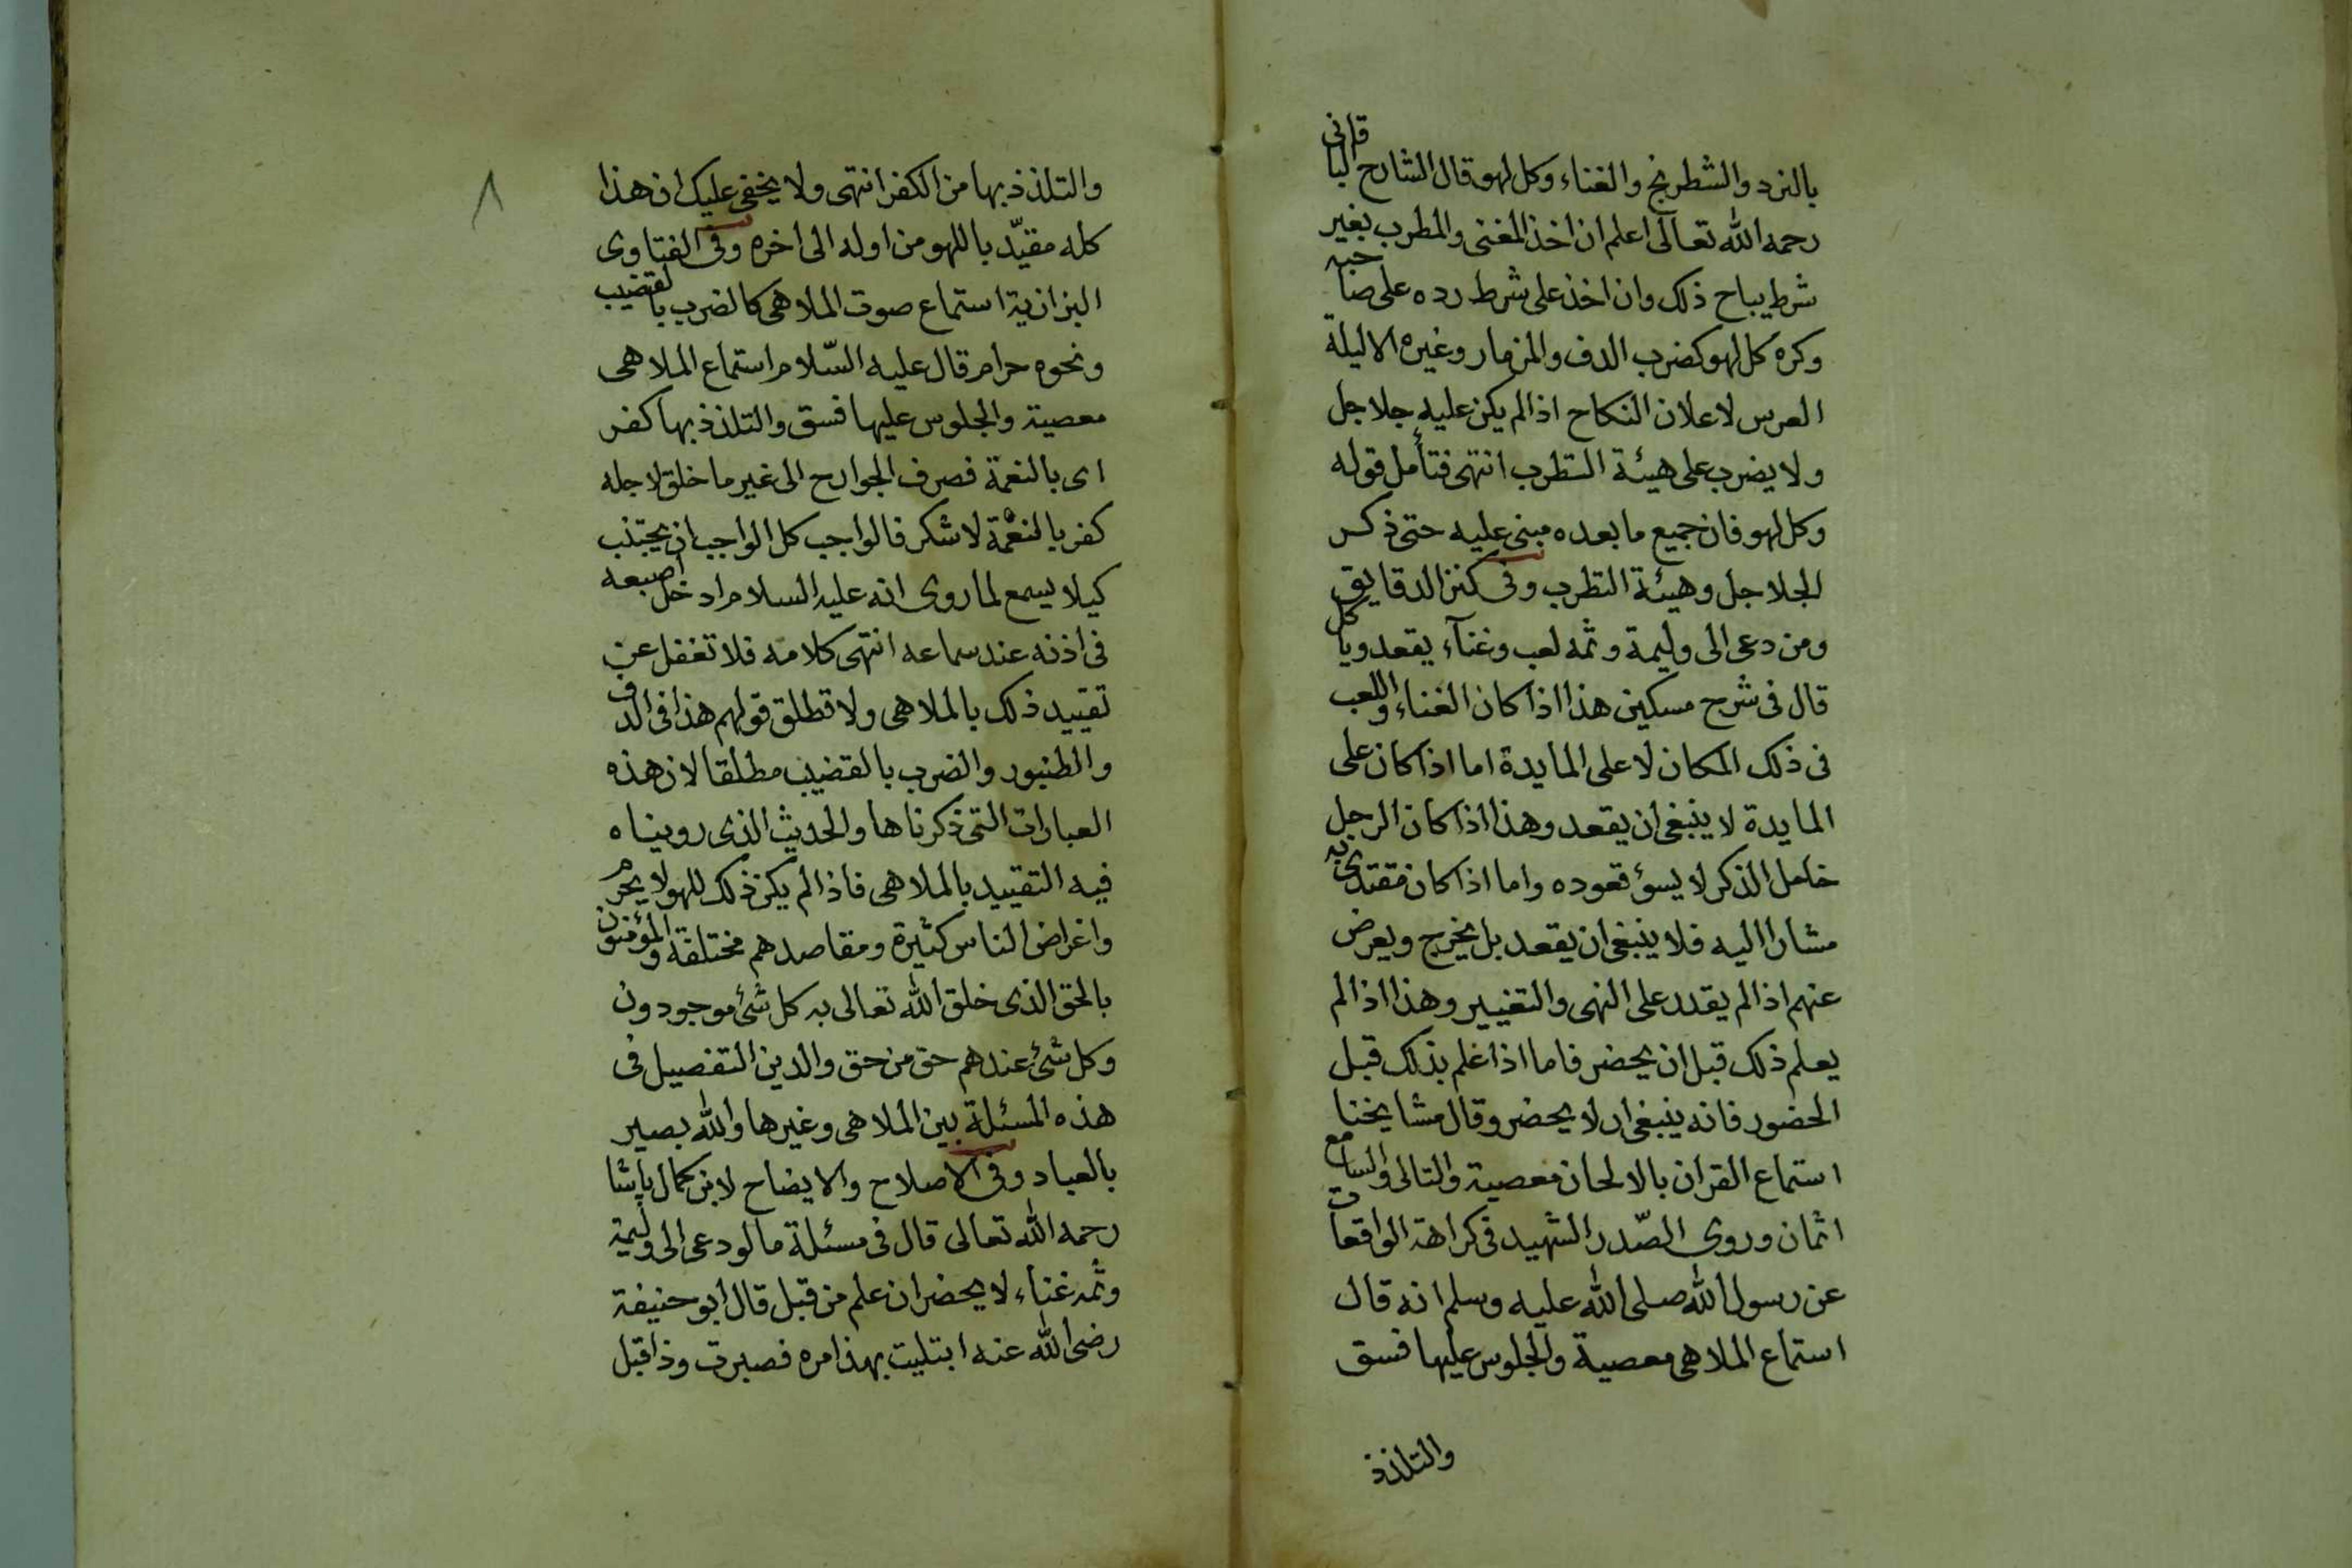 بالنرد والشطرنج والغناء وكل لهو قال الشارح الباقانى
رحمه الله تعالى اعلم ان اخذ المغنى والمطرب بغير
شرط يباح ذلك وان اخذ على شرط رده على صاحبه
وكره كل لهو كضرب الدف والمزمار وغيره الا ليلة
العرس لاعلان النكاح اذا لم يكن عليه جلاجل
ولا يضرب على هيئة التطرب انتهى فتأمل قوله
وكل لهو فان جميع ما بعده مبنى عليه حتى ذكر
الجلاجل وهيئة التطرب وفى كنز الدقايق
ومن دعى الى وليمة وثمه لعب وغنآء يقعد وياكل
قال فى شرح مسكين هذا اذا كان الغناء واللعب
فى ذلك المكان لا على المايدة اما اذا كان على
المايدة لا ينبغى ان يقعد وهذا اذا كان الرجل
خامل الذكر لا يسؤ قعوده واما اذا كان مقتدى به
مشارا اليه فلا ينبغى ان يقعد بل يخرج ويعرض
عنهم اذا لم يقدر على النهى والتغيير وهذا اذا لم
يعلم ذلك قبل ان يحضر فاما اذا علم بذلك قبل
الحضور فانه ينبغى ان لا يحضر وقال مشايخنا
استماع القران بالالحان معصية والتالى والسامع
اثمان وروى الصّدر الشهيد فى كراهة الواقعات
عن رسول الله صلى الله عليه وسلم انه قال
استماع الملاهى معصية والجلوس عليها فسق
والتلذذ
٨
والتلذذ بها من الكفر انتهى ولا يخفى عليك ان هذا
كله مقيّد باللهو من اوله الى اخره وفى الفتاوى
البزازية استماع صوت الملاهى كالضرب بالقضيب
ونحوه حرام قال عليه السّلام استماع الملاهى
معصية والجلوس عليها فسق والتلذذ بها كفر
اى بالنعمة فصرف الجوارح الى غير ما خلق لاجله
كفر بالنعمة لا شكر فالواجب كل الواجب ان يجتنب
كيلا يسمع لما روى انه عليه السلام ادخل اصبعه
فى اذنه عند سماعه انتهى كلامه فلا تغفل عن
تقييد ذلك بالملاهى ولا تطلق قولهم هذا فى الدف
والطنبور والضرب بالقضيب مطلقا لان هذه
العبارات التى ذكرناها والحديث الذى رويناه
فيه التقييد بالملاهى فاذا لم يكن ذلك للهو لا يحرم
واغراض الناس كثيرة ومقاصدهم مختلفة والمؤمنون
بالحق الذى خلق الله تعالى به كل شئ موجودون
وكل شئ عندهم حق من حق والدين التفصيل فى
هذه المسئلة بين الملاهى وغيرها والله بصير
بالعباد وفى الاصلاح والايضاح لابن كمال باشا
رحمه الله تعالى قال فى مسئلة ما لو دعى الى وليمة
وثمه غناء لا يحضر ان علم من قبل قال ابو حنيفة
رضى الله عنه ابتليت بهذا مره فصبرت وذا قبل